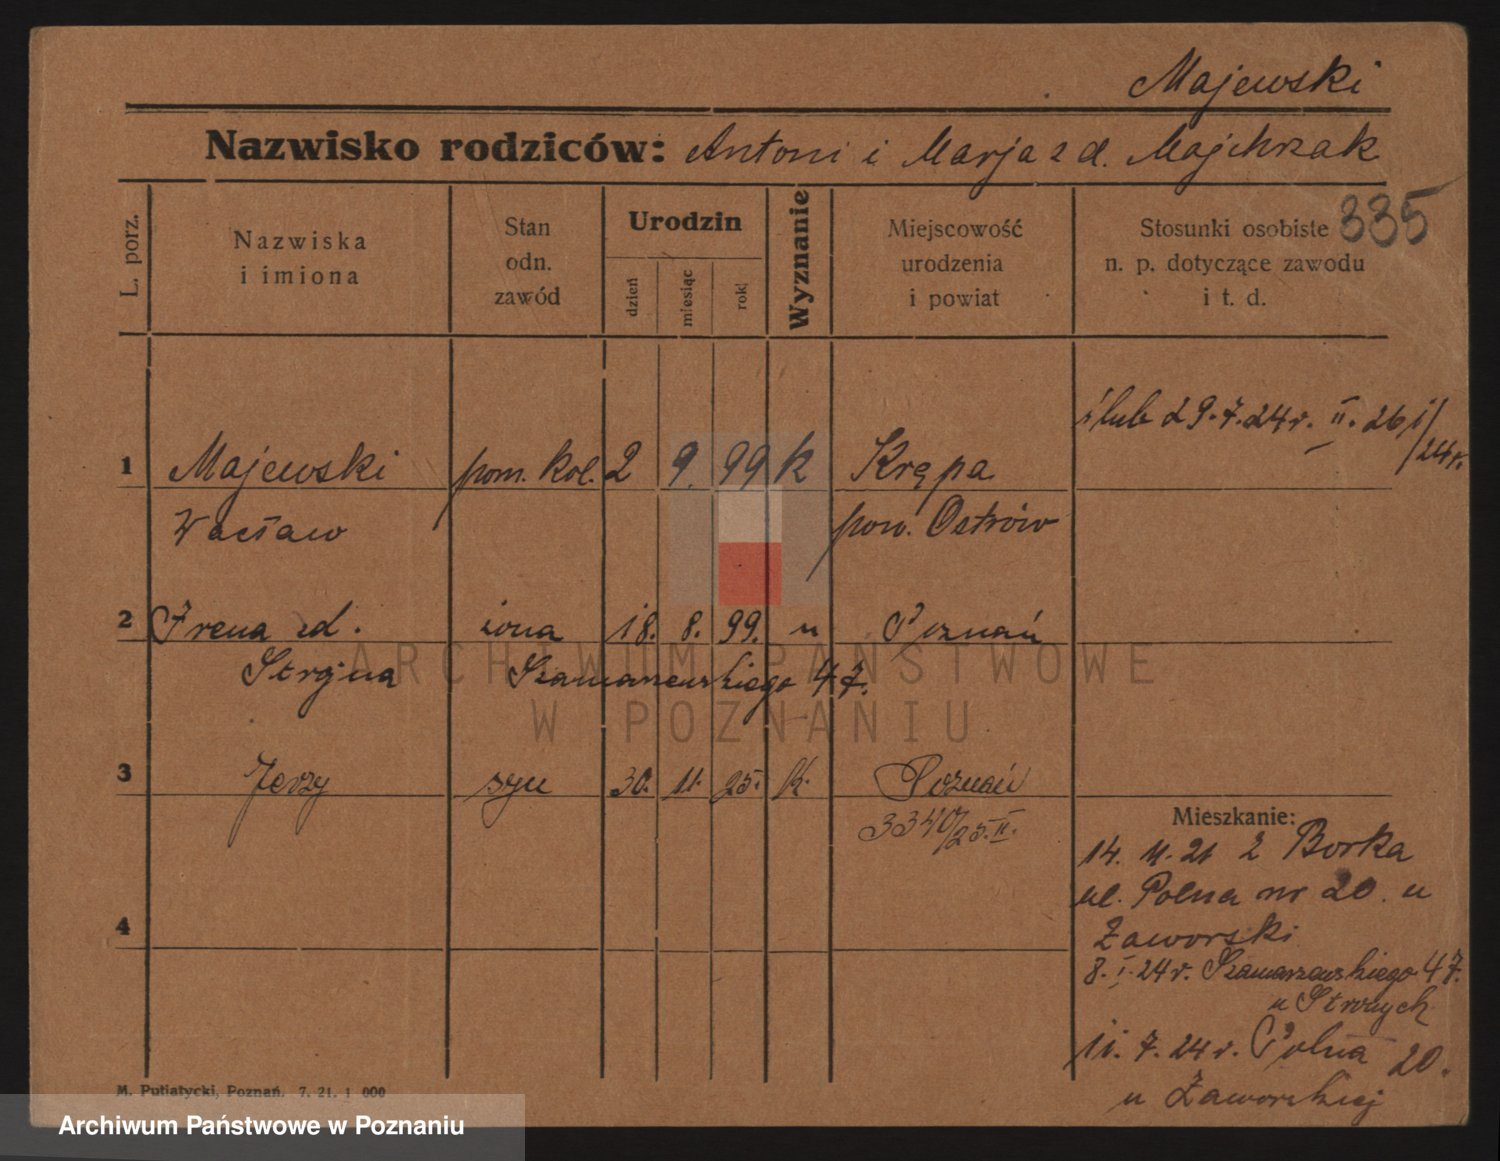 Majewski
Nazwisko rodziców: Antoni i Marja z d. Majchrzak
335
L. porz.
Nazwiska
i imiona
Stan
odn.
zawód
Urodzin
dzień
miesiąc
rok
Wyznanie
Miejscowość
urodzenia
i powiat
Stosunki osobiste
n. p. dotyczące zawodu
i t. d.
ślub 29.7.24 r. II. 261/24 r.
1 Majewski pom. kol. 2 9. 99 k Krępa
Wacław pow. Ostrów
2 Irena zd. żona 18. 8. 99. " Poznań
Strójna Szamarzewskiego 47.
3 Jerzy syn 30. 11. 25. k. Poznań
3340/25. II.
4
Mieszkanie:
14. 11. 21 z Borka
ul. Polna nr 20. u
Zaworski
8. I. 24 r. Szamarzewskiego 47.
u
11. 7. 24 r. Polna 20.
u Zaworskiej
M. Putiatycki, Poznań. 7. 21. 1 000
ARCHIWUM PAŃSTWOWE
W POZNANIU
Archiwum Państwowe w Poznaniu